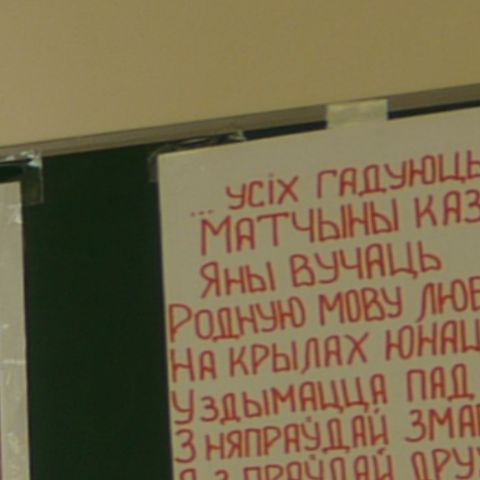 ... УСІХ ГАДУЮЦЬ
МАТЧЫНЫ КАЗ
ЯНЫ ВУЧАЦЬ
РОДНУЮ МОВУ ЛЮБ
НА КРЫЛАХ ЮНАЦ
УЗДЫМАЦЦА ПАД
З НЯПРАЎДАЙ ЗМАГ
А З ПРАЎДАЙ ДРУЖ